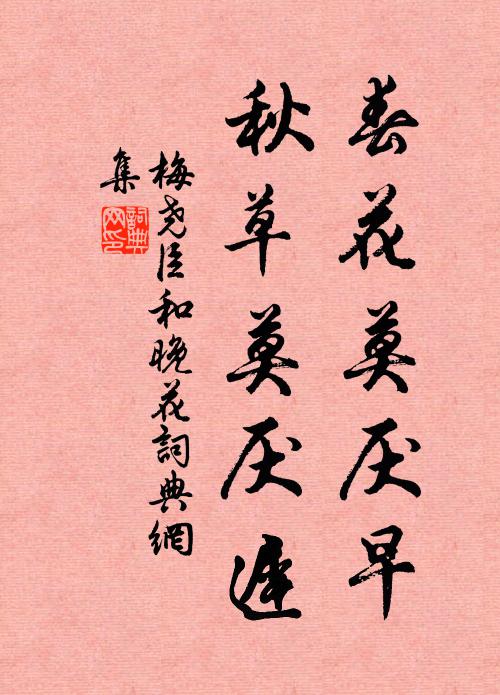 春花莫厌早
秋草莫厌遲
梅尧臣和晚花詞典網
集
詞典
网印